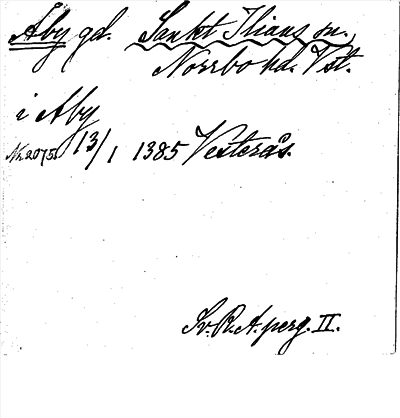 Åby gd. Sankt Ilians sn.,
Norrbo hd. Vst.
i Aby
Nr. 2075 13/1 1385 Vesterås.
Sv. R. A. perg. II.